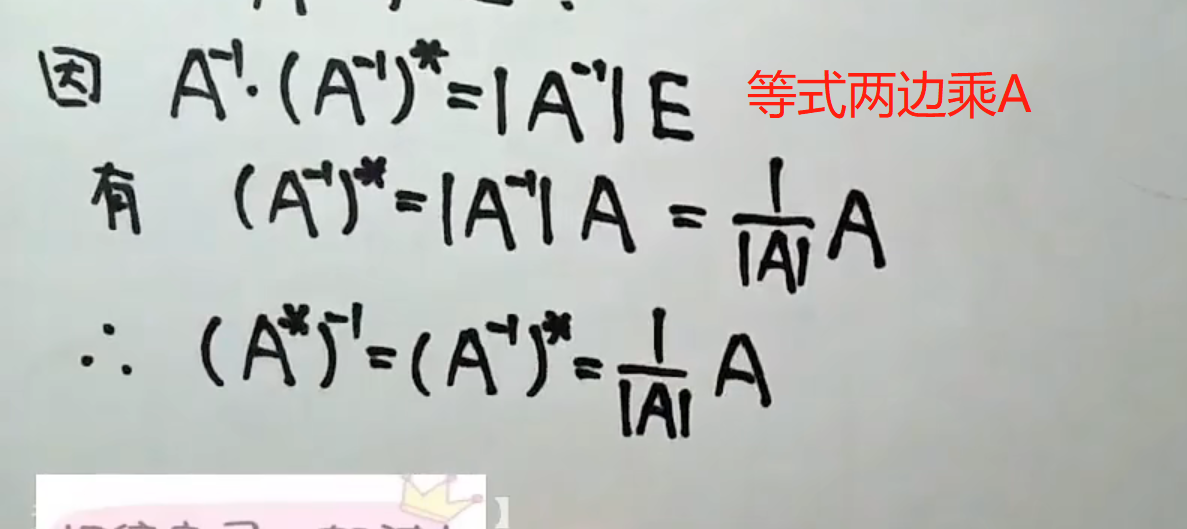 因 A⁻¹·(A⁻¹)* = |A⁻¹| E 等式两边乘A
有 (A⁻¹)* = |A⁻¹| A = 1/|A| A
∴ (A*)⁻¹ = (A⁻¹)* = 1/|A| A
】